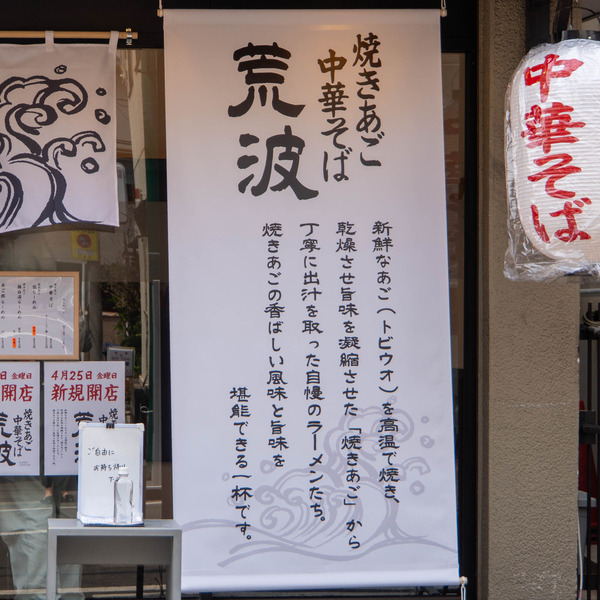 焼きあご
中華そば
荒波
新鮮なあご(トビウオ)を高温で焼き、
乾燥させ旨味を凝縮させた「焼きあご」から
丁寧に出汁を取った自慢のラーメンたち。
焼きあごの香ばしい風味と旨味を
堪能できる一杯です。
中華そば
4月25日 金曜日
新規開店
焼きあご
中華そば
荒波
日 金曜日
開店
焼きあご
中華そば
荒波
ご自由に
お持ち帰り